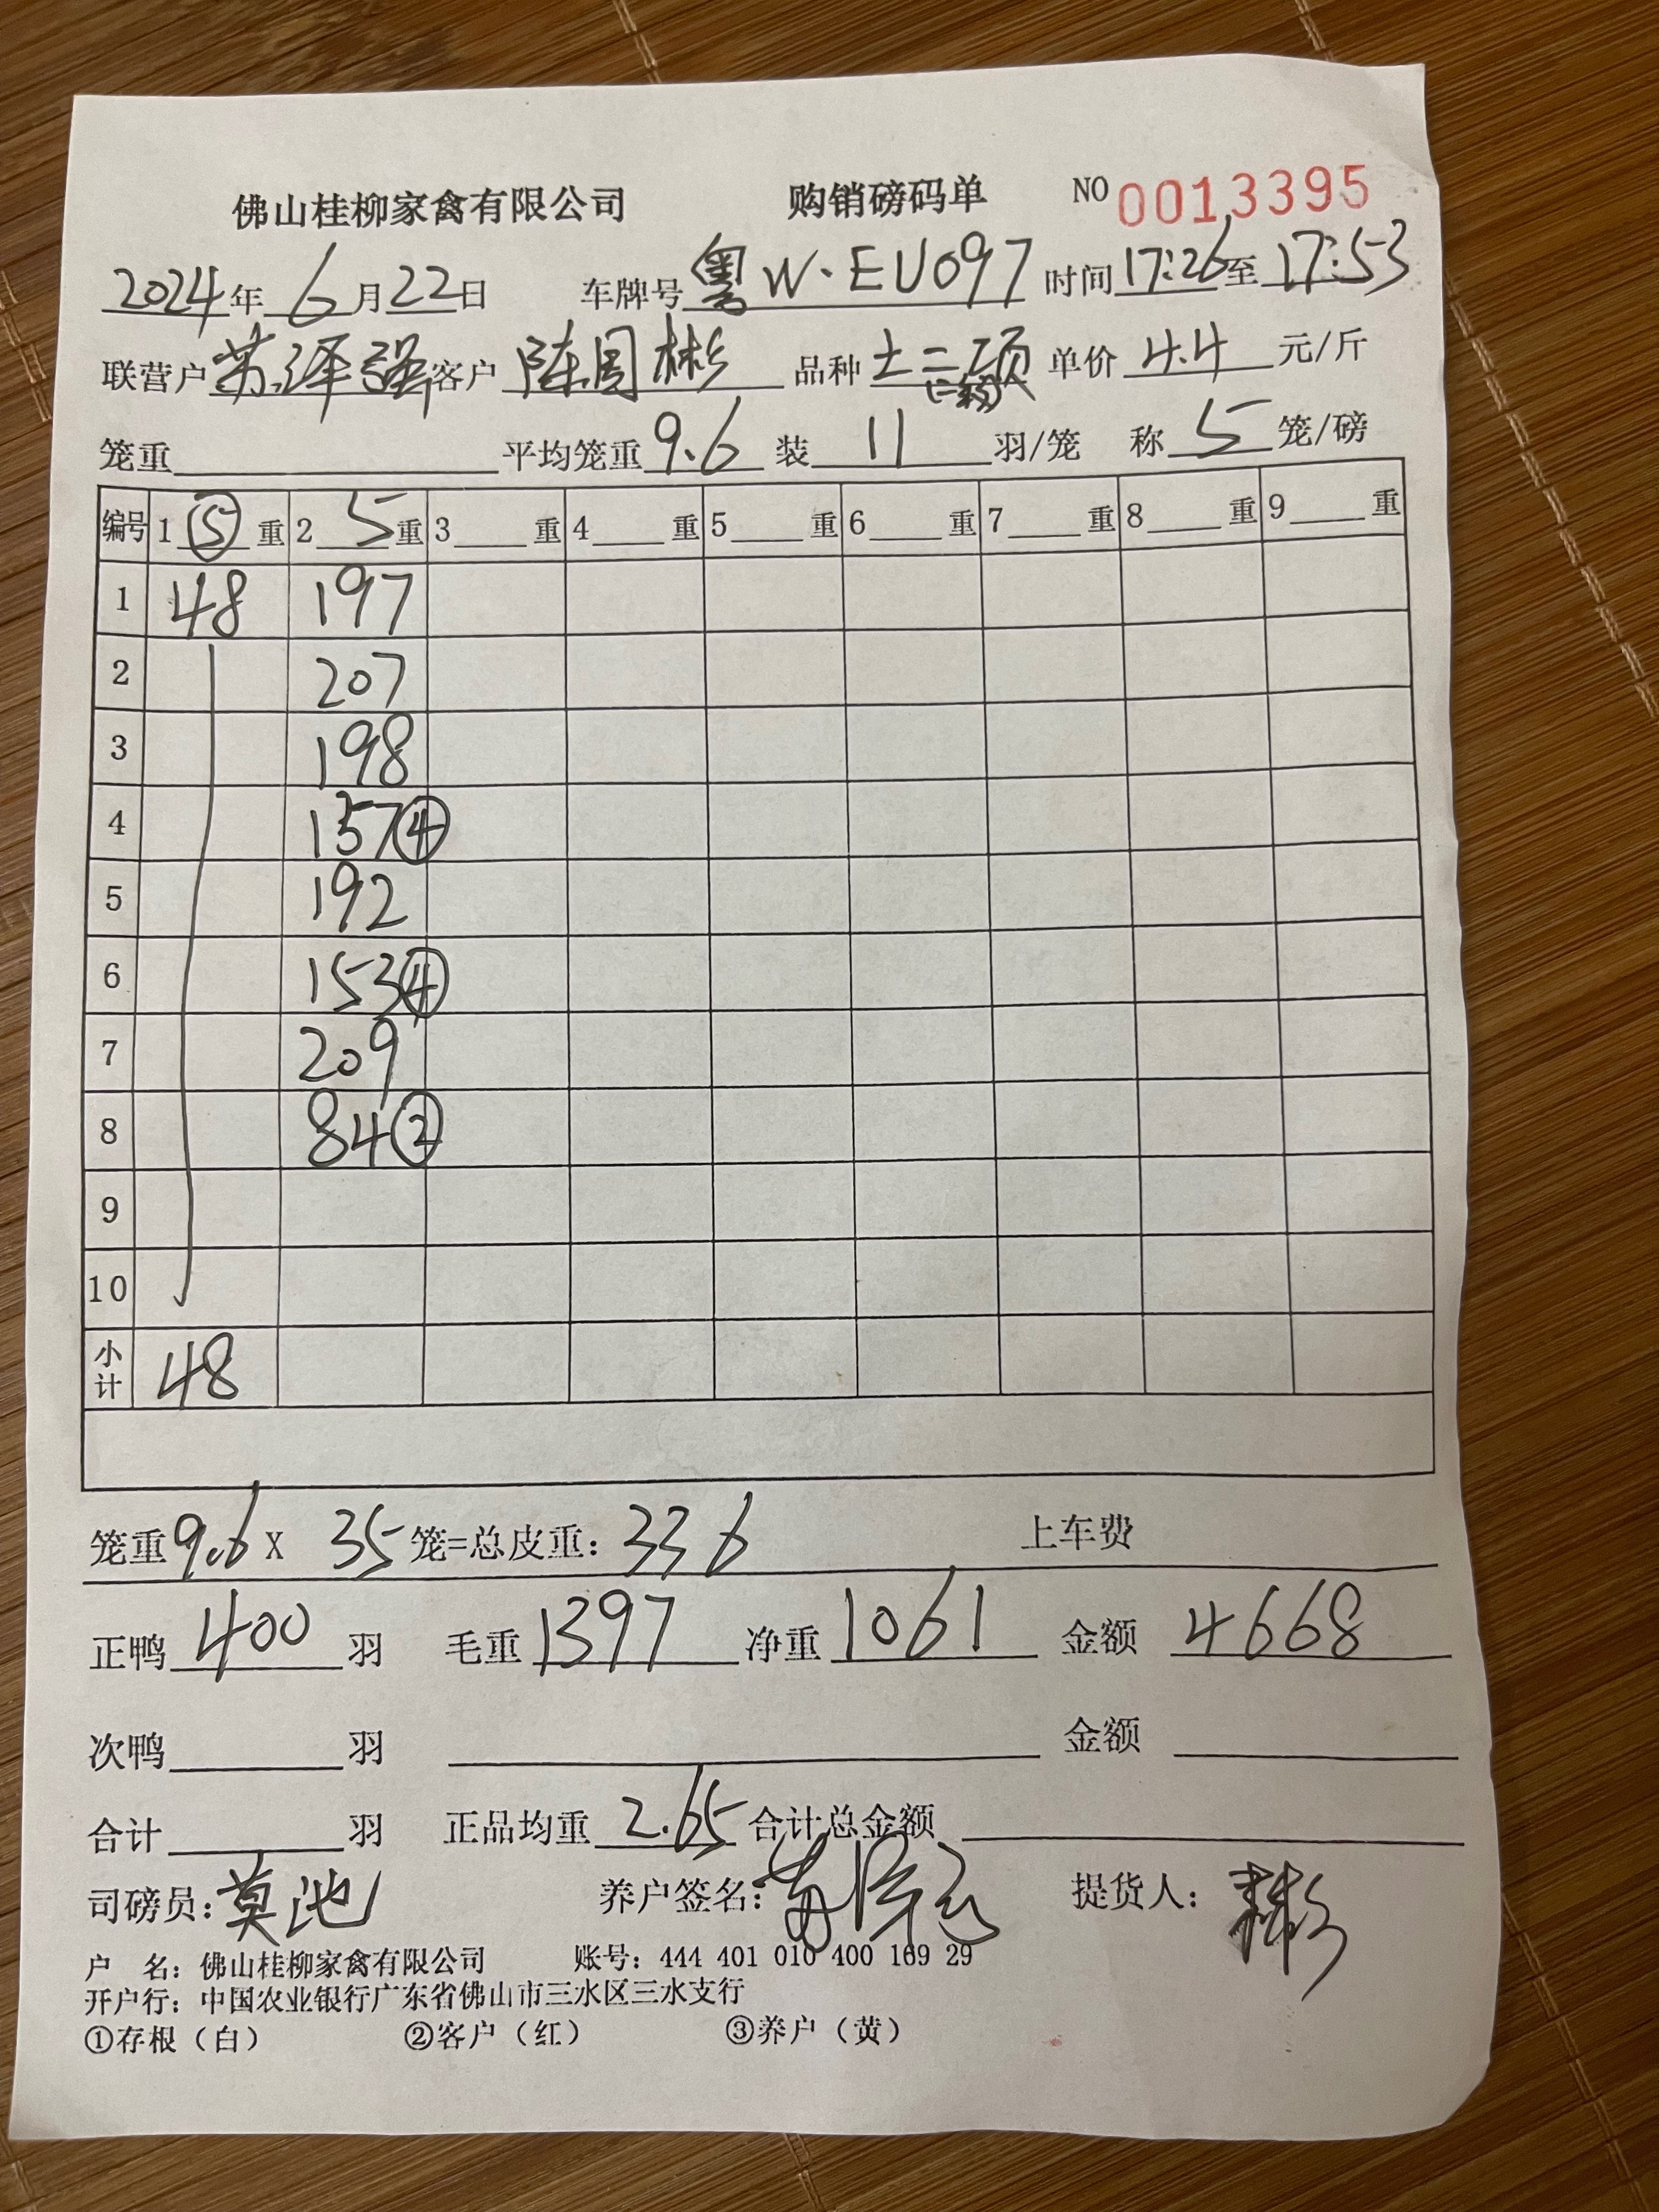 佛山桂柳家禽有限公司 购销磅码单 NO 0013395
2024年 6月22日 车牌号 粤W·EU097 时间17:26至17:53
联营户 苏泽强 客户 陈周彬 品种 土二项 单价 4.4 元/斤
笼重 平均笼重 9.6 装 11 羽/笼 称 5 笼/磅
编号 1 ⑤ 重 2 5 重 3 重 4 重 5 重 6 重 7 重 8 重 9 重
1 48 197
2 207
3 198
4 157④
5 192
6 153④
7 209
8 84②
9
10
小计 48
笼重 9.6 X 35 笼=总皮重: 336 上车费
正鸭 400 羽 毛重 1397 净重 1061 金额 4668
次鸭 羽 金额
合计 羽 正品均重 2.65 合计总金额
司磅员: 莫池 养户签名: 提货人:
户 名: 佛山桂柳家禽有限公司 账号: 444 401 010 400 169 29
开户行: 中国农业银行广东省佛山市三水区三水支行
①存根（白） ②客户（红） ③养户（黄）